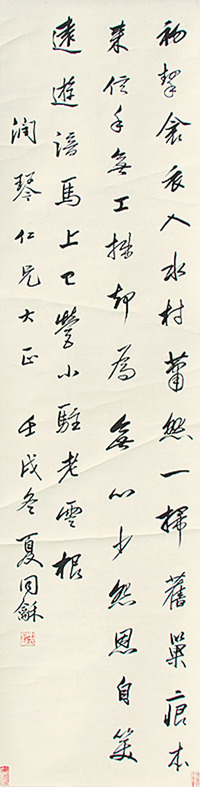 初挈衾衣入水村蕭然一掃舊巢痕本
來信手無工拙却為無心少怨恩自笑
遠遊諳馬上已營小駐老雲根
润琴仁兄大正 壬戌冬夏同龢